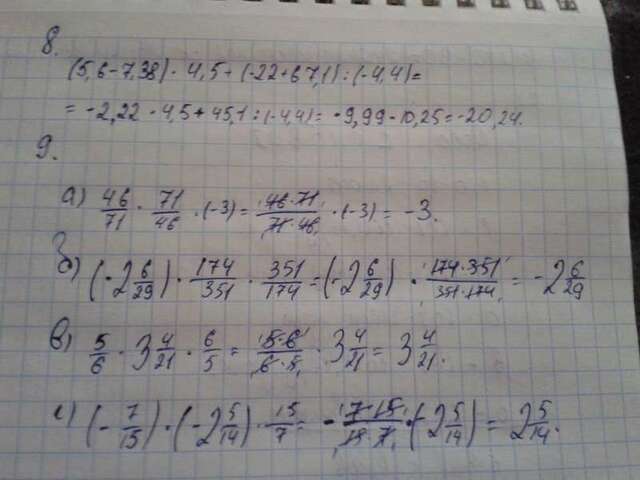 8.
(5,6-7,38)·4,5+(-22+67,1):(-4,4)=
= -2,22·4,5+45,1:(-4,4)= -9,99-10,25=-20,24.
9.
а) 46/71 · 71/46 ·(-3)= 46·71/71·46 ·(-3)= -3.
б) (-2 6/29)· 174/351 · 351/174 =(-2 6/29)· 174·351/351·174 = -2 6/29
в) 5/6 · 3 4/21 · 6/5 = 5·6/6·5 · 3 4/21 = 3 4/21.
г) (- 7/15)·(-2 5/14)· 15/7 = - 7·15/15·7 ·(-2 5/14) = 2 5/14.